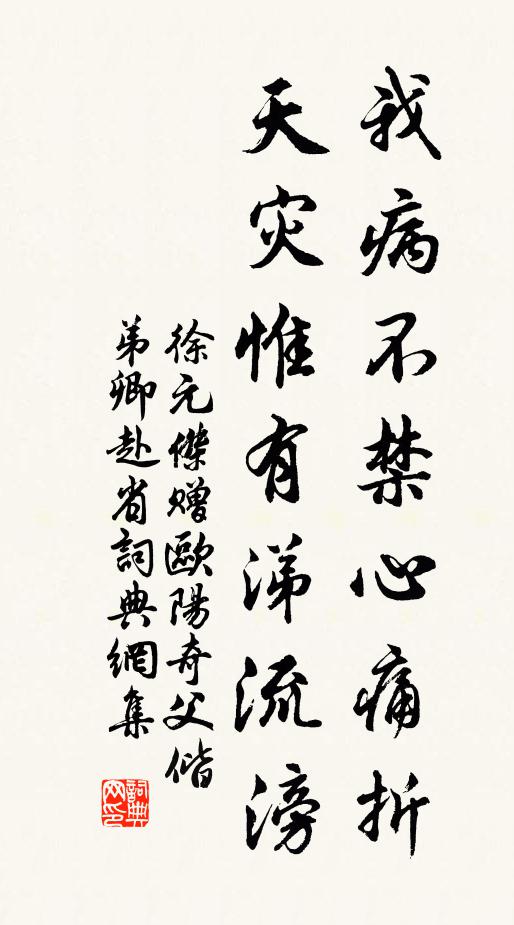 我病不禁心痛折
天灾惟有涕流滂
徐元傑赠歐陽奇父偕
弟卿赴省詞典網集
詞典
网印